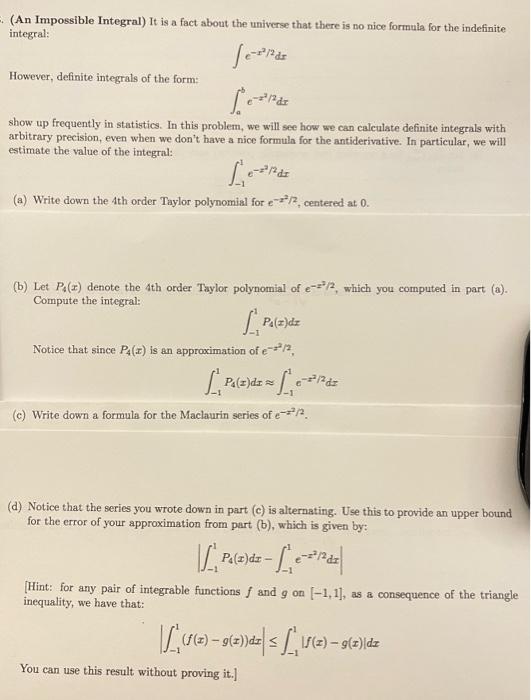 . (An Impossible Integral) It is a fact about the universe that there is no nice formula for the indefinite
integral:
∫ e^{-x²/2} dx
However, definite integrals of the form:
∫_a^b e^{-x²/2} dx
show up frequently in statistics. In this problem, we will see how we can calculate definite integrals with
arbitrary precision, even when we don't have a nice formula for the antiderivative. In particular, we will
estimate the value of the integral:
∫_{-1}^1 e^{-x²/2} dx
(a) Write down the 4th order Taylor polynomial for e^{-x²/2}, centered at 0.
(b) Let P₄(x) denote the 4th order Taylor polynomial of e^{-x²/2}, which you computed in part (a).
Compute the integral:
∫_{-1}^1 P₄(x)dx
Notice that since P₄(x) is an approximation of e^{-x²/2},
∫_{-1}^1 P₄(x)dx ≈ ∫_{-1}^1 e^{-x²/2} dx
(c) Write down a formula for the Maclaurin series of e^{-x²/2}.
(d) Notice that the series you wrote down in part (c) is alternating. Use this to provide an upper bound
for the error of your approximation from part (b), which is given by:
|∫_{-1}^1 P₄(x)dx − ∫_{-1}^1 e^{-x²/2} dx|
[Hint: for any pair of integrable functions f and g on [−1, 1], as a consequence of the triangle
inequality, we have that:
|∫_{-1}^1 (f(x) − g(x))dx| ≤ ∫_{-1}^1 |f(x) − g(x)|dx
You can use this result without proving it.]